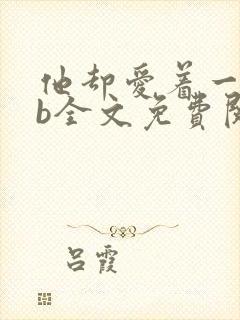 他却爱着一
b全文免費閱
吕霞